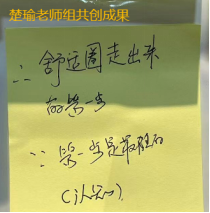 楚瑜老师组共创成果
∴ 舒适圈走出来
的第一步
∵ 第一步是最难的
(认知)